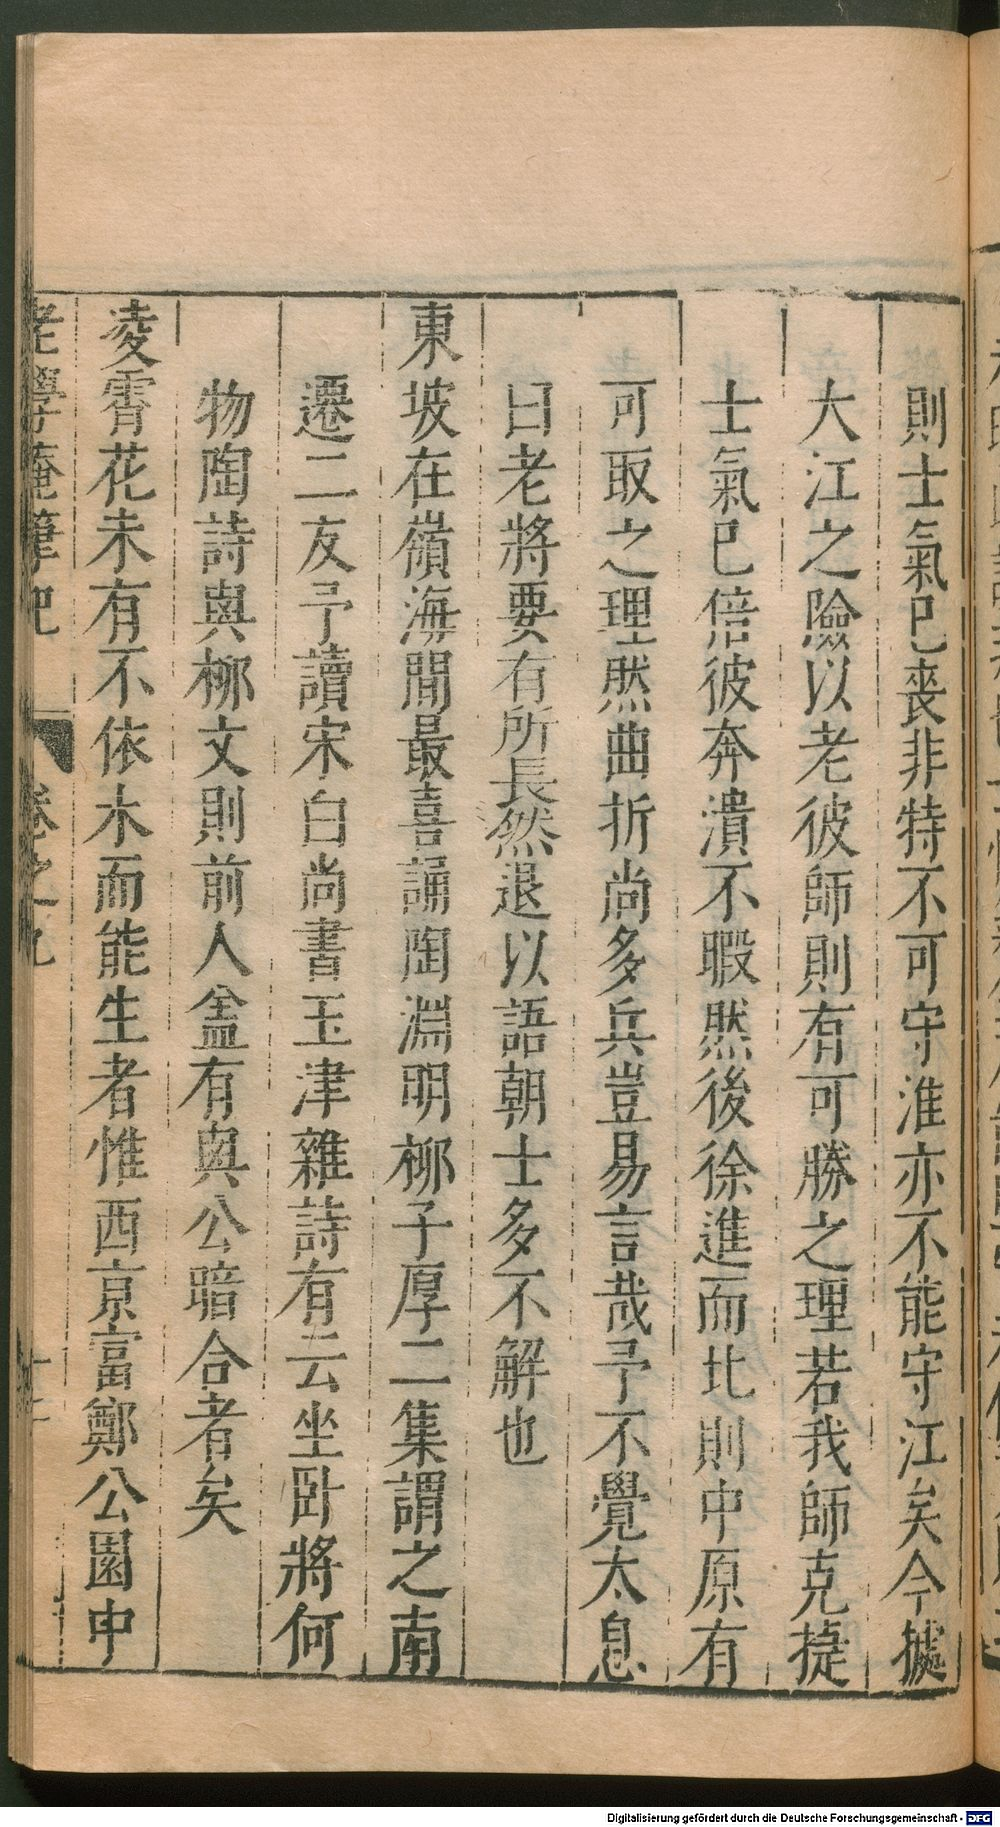 則士氣已喪非特不可守淮亦不能守江矣今據
大江之險以老彼師則有可勝之理若我師克捷
士氣已倍彼奔潰不暇然後徐進而北則中原有
可取之理然曲折尚多兵豈易言哉予不覺太息
曰老將要有所長然退以語朝士多不解也
東坡在嶺海間最喜誦陶淵明柳子厚二集謂之南
遷二友予讀宋白尚書玉津雜詩有云坐臥將何
物陶詩與柳文則前人盖有與公暗合者矣
凌霄花未有不依木而能生者惟西京富鄭公園中
老學菴筆記 卷之九 十二
Digitalisierung gefördert durch die Deutsche Forschungsgemeinschaft - DFG